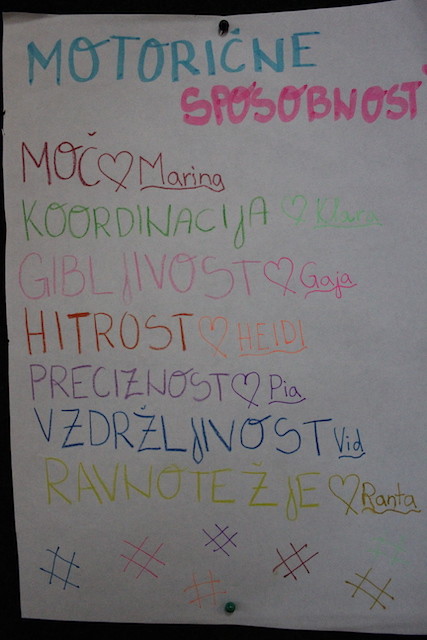 MOTORIČNE
SPOSOBNOST
MOČ ♡ Marina
KOORDINACIJA ♡ Klara
GIBLJIVOST ♡ Gaja
HITROST ♡ HEIDI
PRECIZNOST ♡ Pia
VZDRŽLJIVOST Vid
RAVNOTEŽJE ♡ Ranta